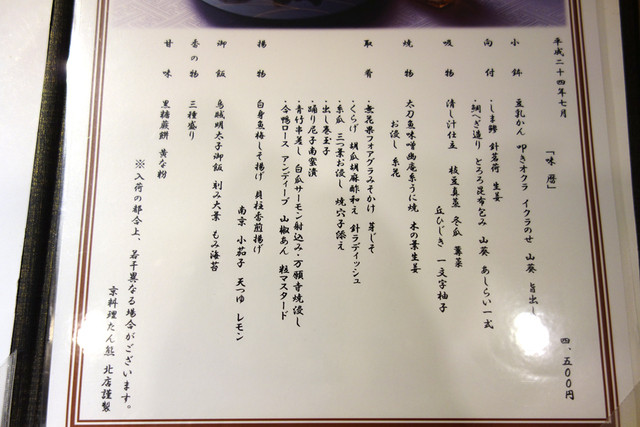 平成二十四年七月
「味暦」
四、五00円
小鉢 豆乳かん 叩きオクラ イクラのせ 山葵 旨出し
向付 ・しま鯵 針茗荷 生姜
・鯛へぎ造り とろろ昆布包み 山葵 あしらい一式
吸物 清し汁仕立 枝豆真茎 冬瓜 蓴菜
丘ひじき 一文字柚子
焼物 太刀魚味噌幽庵糸うに焼 木の葉生姜
お浸し 糸花
取肴 ・無花果フォアグラみそかけ 芽じそ
・くらげ 胡瓜胡麻酢和え 針ラディッシュ
・糸瓜 三つ葉お浸し 焼穴子添え
・出し巻玉子
・踊り尼子南蛮漬
・青竹串差し 白瓜サーモン射込み・万願寺焼浸し
・合鴨ロース アンディーブ 山椒あん 粒マスタード
揚物 白身魚梅しそ揚げ 貝柱香煎揚げ
南京 小茄子 天つゆ レモン
御飯 烏賊明太子御飯 刻み大葉 もみ海苔
香の物 三種盛り
甘味 黒糖煎餅 黄な粉
※入荷の都合上、若干異なる場合がございます。
京料理たん熊 北店謹製